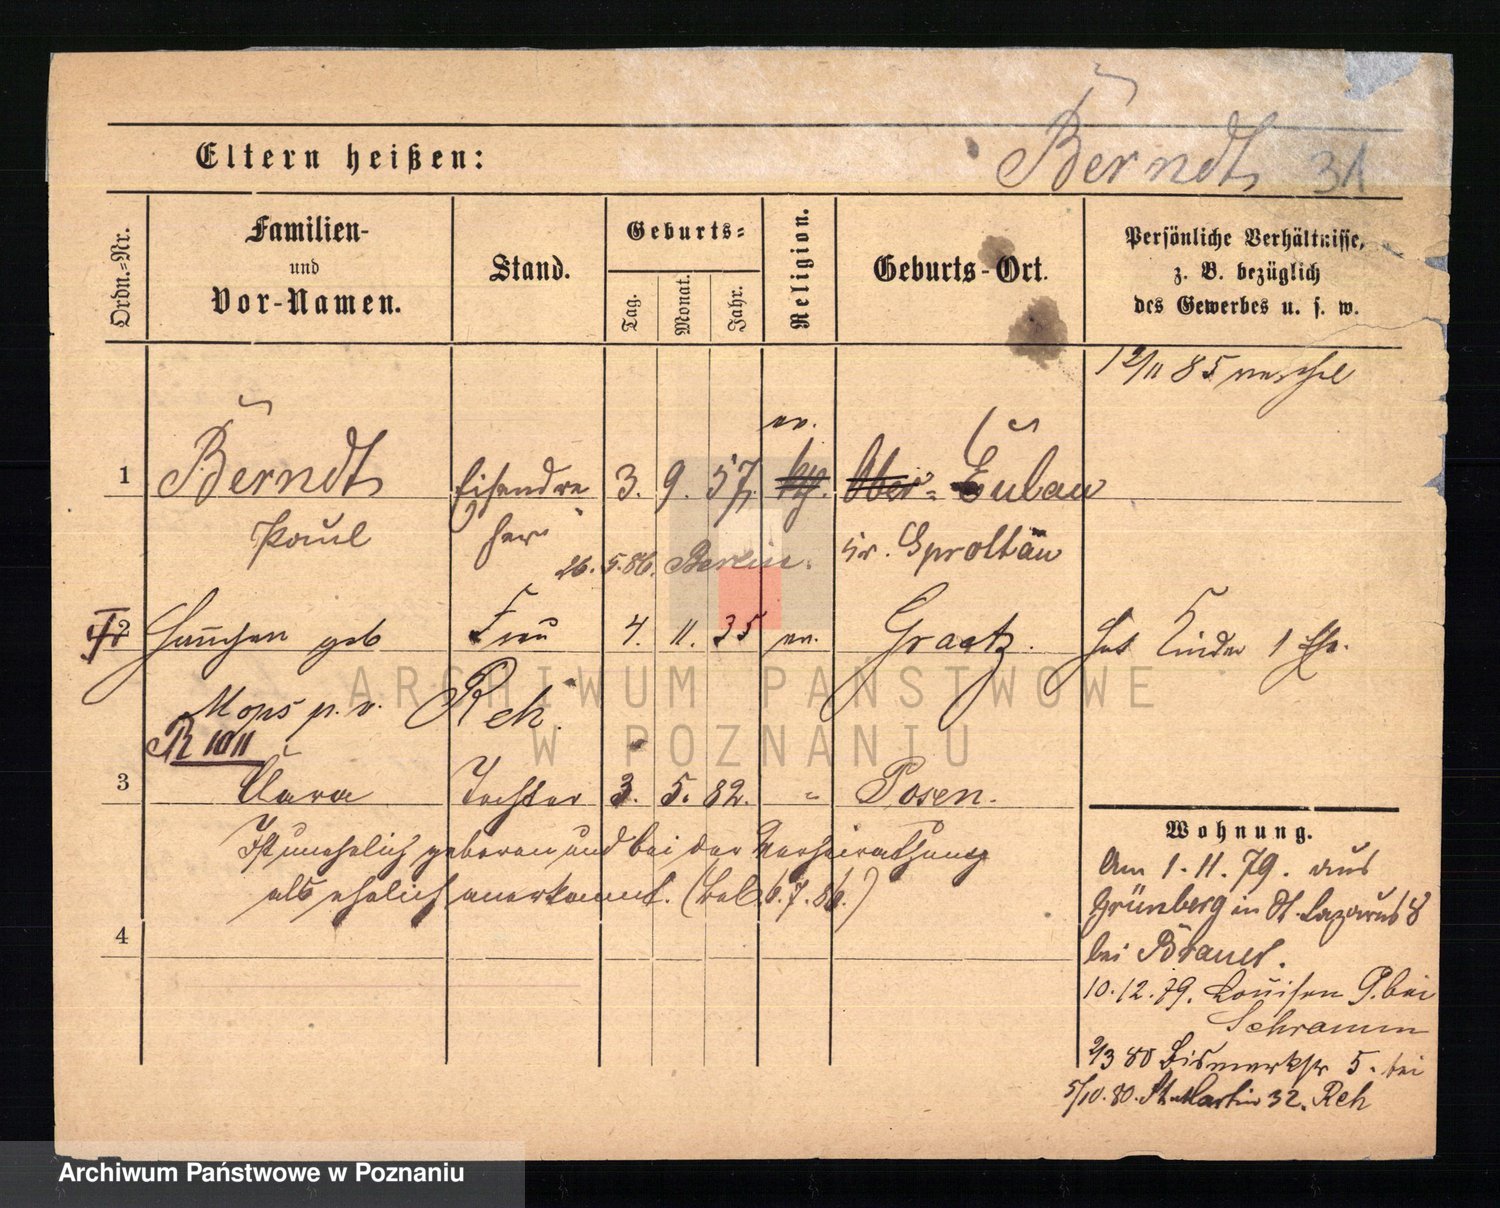 Berndt 31
Eltern heißen:
Ordn.-Nr.
Familien-
und
Vor-Namen.
Stand.
Geburts-
Tag.
Monat.
Jahr.
Religion.
Geburts-Ort.
Persönliche Verhältnisse,
z. B. bezüglich
des Gewerbes u. s. w.
12/11 85
ev.
1 Berndt Eisendre 3. 9. 57. Ober-Eulau
Paul her Kr. Sprottau
26. 5. 86. Berlin.
2 geb Frau 4. 11. 35 ev. Graetz. Hat Kinder 1 Ehe.
Mops p. v. Reh.
R 1011
3 Clara Tochter 3. 5. 82. " Posen.
Ist unehelich geboren und bei der Verheirathung
als ehelich anerkannt. (6. 7. 86.)
4
Wohnung.
Am 1. 11. 79. aus
Grünberg in St. Lazarus 8
bei Brauer.
10. 12. 79. Louisen 9. bei
Schramm
2/3 80 Bismarkstr 5. bei
5/10. 80. St. Martin 32. Reh
ARCHIWUM PAŃSTWOWE
W POZNANIU
Archiwum Państwowe w Poznaniu